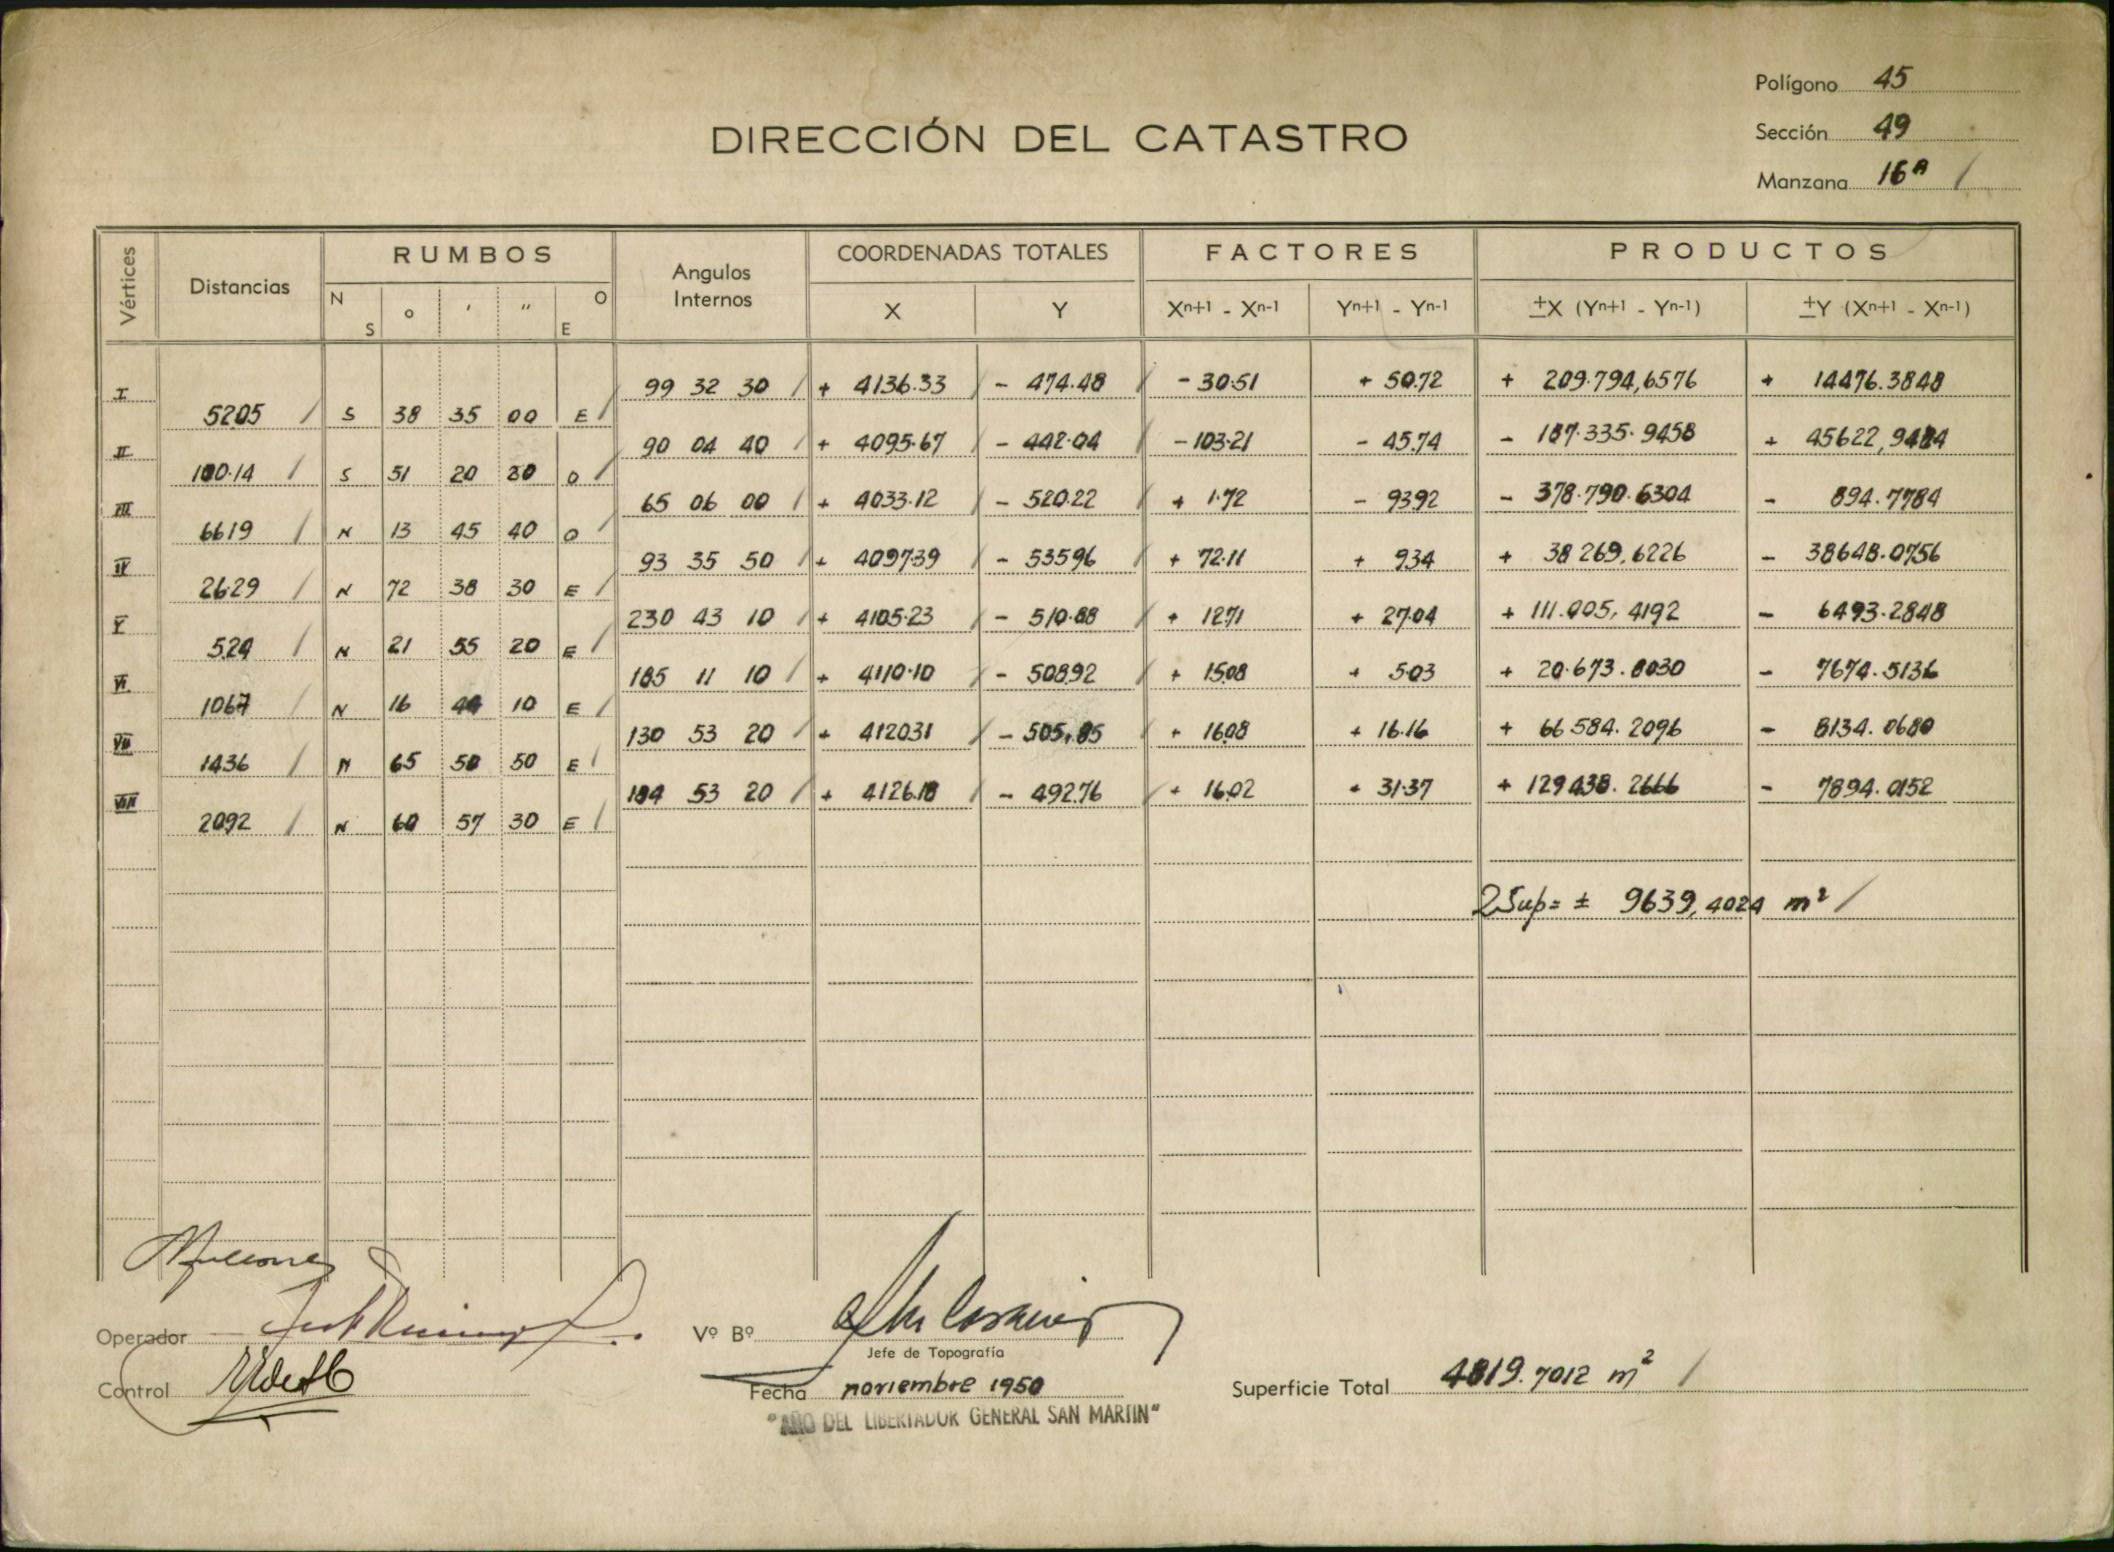 Polígono 45
DIRECCIÓN DEL CATASTRO
Sección 49
Manzana 16ᴬ /
Vértices Distancias RUMBOS Angulos Internos COORDENADAS TOTALES FACTORES PRODUCTOS
N S o ' " O E X Y Xn+1 - Xn-1 Yn+1 - Yn-1 ±X (Yn+1 - Yn-1) ±Y (Xn+1 - Xn-1)
I 99 32 30 / + 4136.33 / - 474.48 / - 30.51 + 50.72 + 209.794,6576 + 14476.3848
52.05 / S 38 35 00 E /
II 90 04 40 / + 4095.67 / - 442.04 / - 103.21 - 45.74 - 187.335.9458 + 45622,9484
100.14 / S 51 20 20 O /
III 65 06 00 / + 4033.12 / - 520.22 / + 1.72 - 93.92 - 378.790.6304 - 894.7784
66.19 / N 13 45 40 O /
IV 93 35 50 / + 4097.39 / - 535.96 / + 72.11 + 9.34 + 38 269,6226 - 38648.0756
26.29 / N 72 38 30 E /
V 230 43 10 / + 4105.23 / - 510.88 / + 12.71 + 27.04 + 111.005,4192 - 6493.2848
5.24 / N 21 55 20 E /
VI 185 11 10 / + 4110.10 / - 508.92 / + 15.08 + 5.03 + 20.673.8030 - 7674.5136
10.67 / N 16 44 10 E /
VII 130 53 20 / + 4120.31 / - 505.85 + 16.08 + 16.16 + 66 584.2096 - 8134.0680
14.36 / N 65 50 50 E /
VIII 184 53 20 / + 4126.18 / - 492.76 / + 16.02 + 31.37 + 129 438.2666 - 7894.0152
20.92 / N 60 57 30 E /
2Sup= ± 9639,4024 m² /
Operador
Vº Bº
Jefe de Topografía
Control
Fecha noviembre 1950
Superficie Total 4819.7012 m² /
"AÑO DEL LIBERTADOR GENERAL SAN MARTIN"